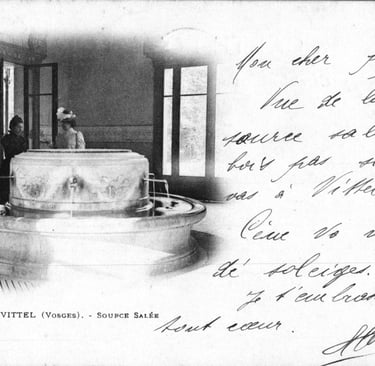 Mon cher
Vue de la
source sal
bois pas
vas à Vittel
dé soleiges.
Je t'embras
tout cœur.
VITTEL (VOSGES). - SOURCE SALÉE